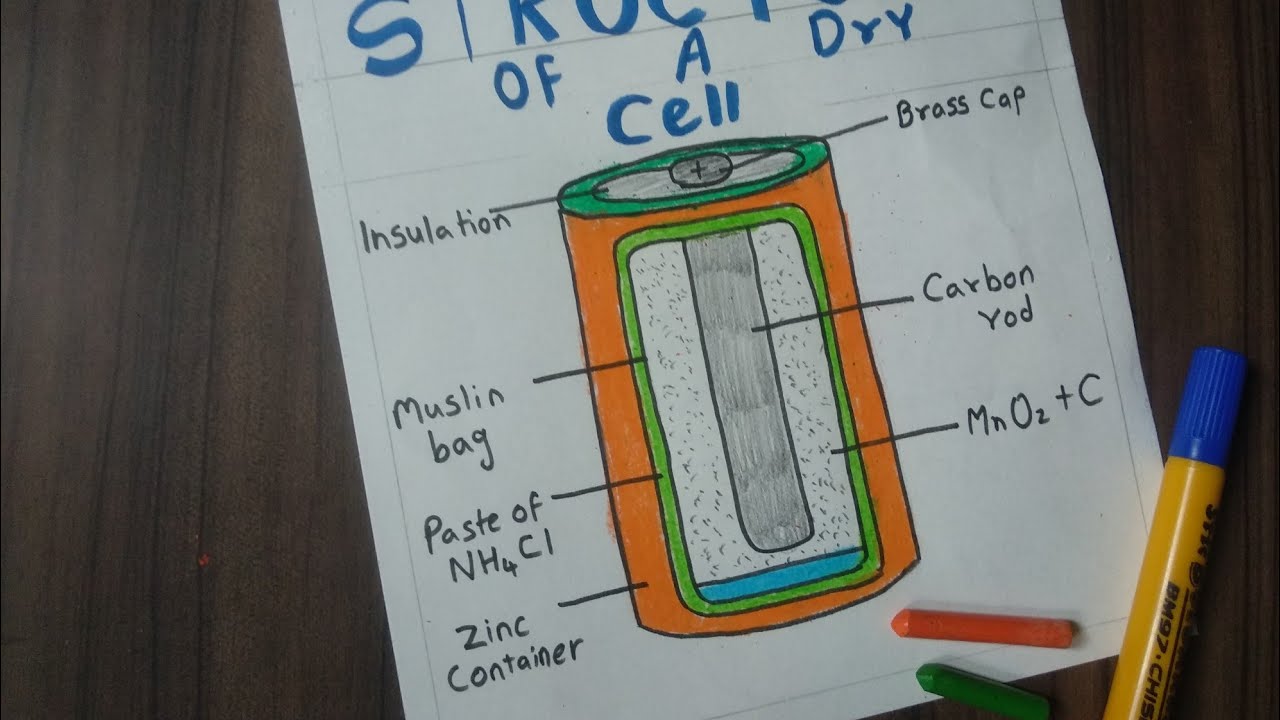 OF A Dry
Cell
Brass Cap
+
Insulation
Carbon
rod
Muslin
bag
MnO₂ + C
Paste of
NH₄Cl
Zinc
Container
BM97.